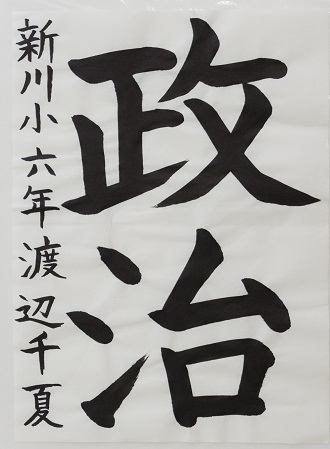 政治
新川小六年渡辺千夏